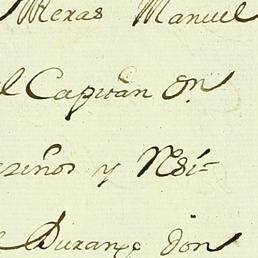 Texas Manuel
el Capitan Dn.
Vezinos y Resi=
e Durango Don